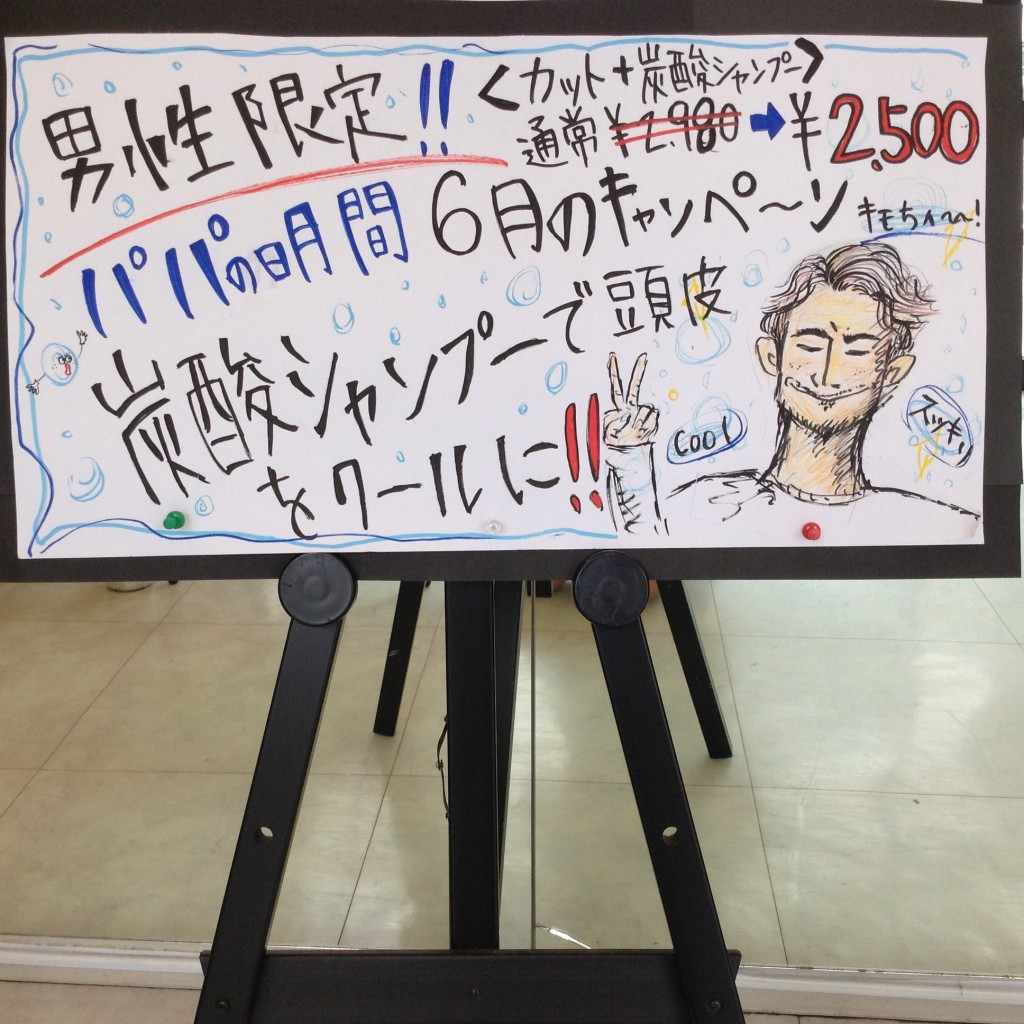 男性限定!!
<カット+炭酸シャンプー>
通常¥2.980➡¥2.500
パパの日月間 6月のキャンペ〜ン
キモちィ〜〜!
炭酸シャンプーで頭皮
をクールに!!
COOl
スッキリ